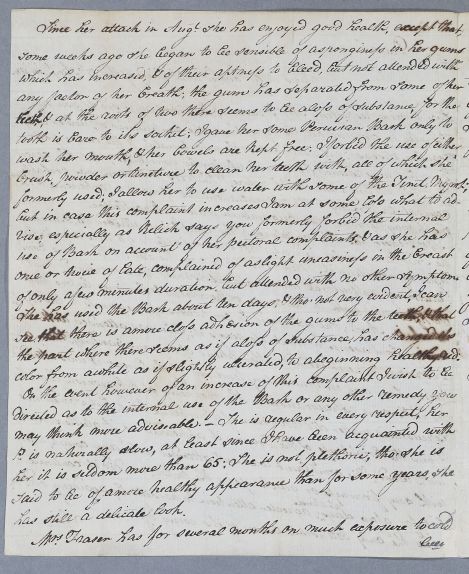 Since her attack in Augt. she has enjoyed good health, except that
some weeks ago she began to be sensible of a sponginess in her gums
which has increased, & of their aptness to bleed, but not attended with
any factor of her breath, the gum has separated from some of her
teeth & at the roots of two there seems to be a loss of substance, for the
tooth is bare to its socket; I gave her some Peruvian Bark only to
wash her mouth, & her bowels are kept free; I forbid the use of either
brush, powder or tincture to clean her teeth with, all of which she
formerly used. I allow her to use water with some of the Tinct. Myrrh:
but in case this complaint increases I am at some loss what to ad-
vise, especially as Relich says you formerly forbid the internal
use of Bark on account of her pectoral complaints, & as she has
one or twice of late, complained of a slight uneasiness in the breast
of only a few minutes duration, but attended with no other symptom
She has used the Bark about ten days, & tho' not very evident, I can
see that there is a more close adhesion of the gums to the teeth, & that
the part where there seems as if a loss of substance, has changed its
color from a white as if slightly ulcerated, to a beginning healthy red.
On the event however of an increase of this complaint I wish to be
directed as to the internal use of the Bark or any other remedy you
may think more adviseable. – She is regular in every respect, her
P. is naturally slow, at least since I have been acquainted with
her it is seldom more than 65. She is not plethoric, tho' she is
said to be of a more healthy appearance than for some years, she
has still a delicate look.
Mrs. Fraser has for several months on much exposure to cold